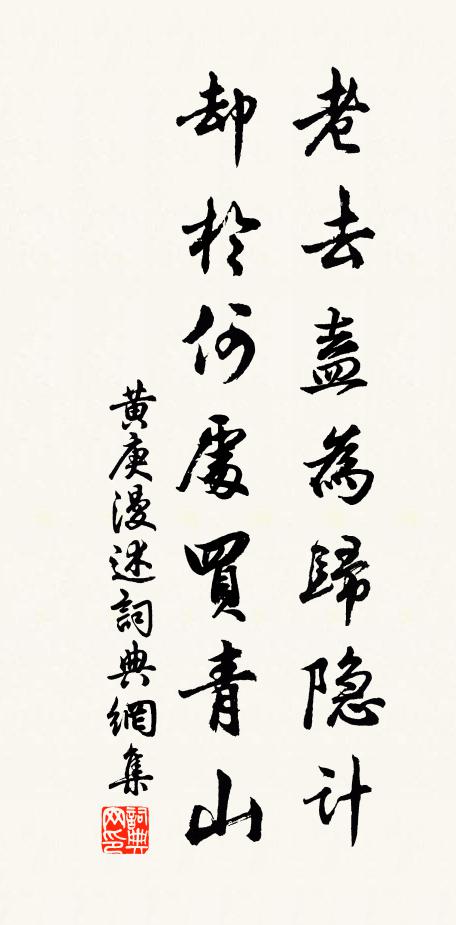 老去盍為歸隐計
却於何處買青山
黃庚漫述詞典網集
詞典网印